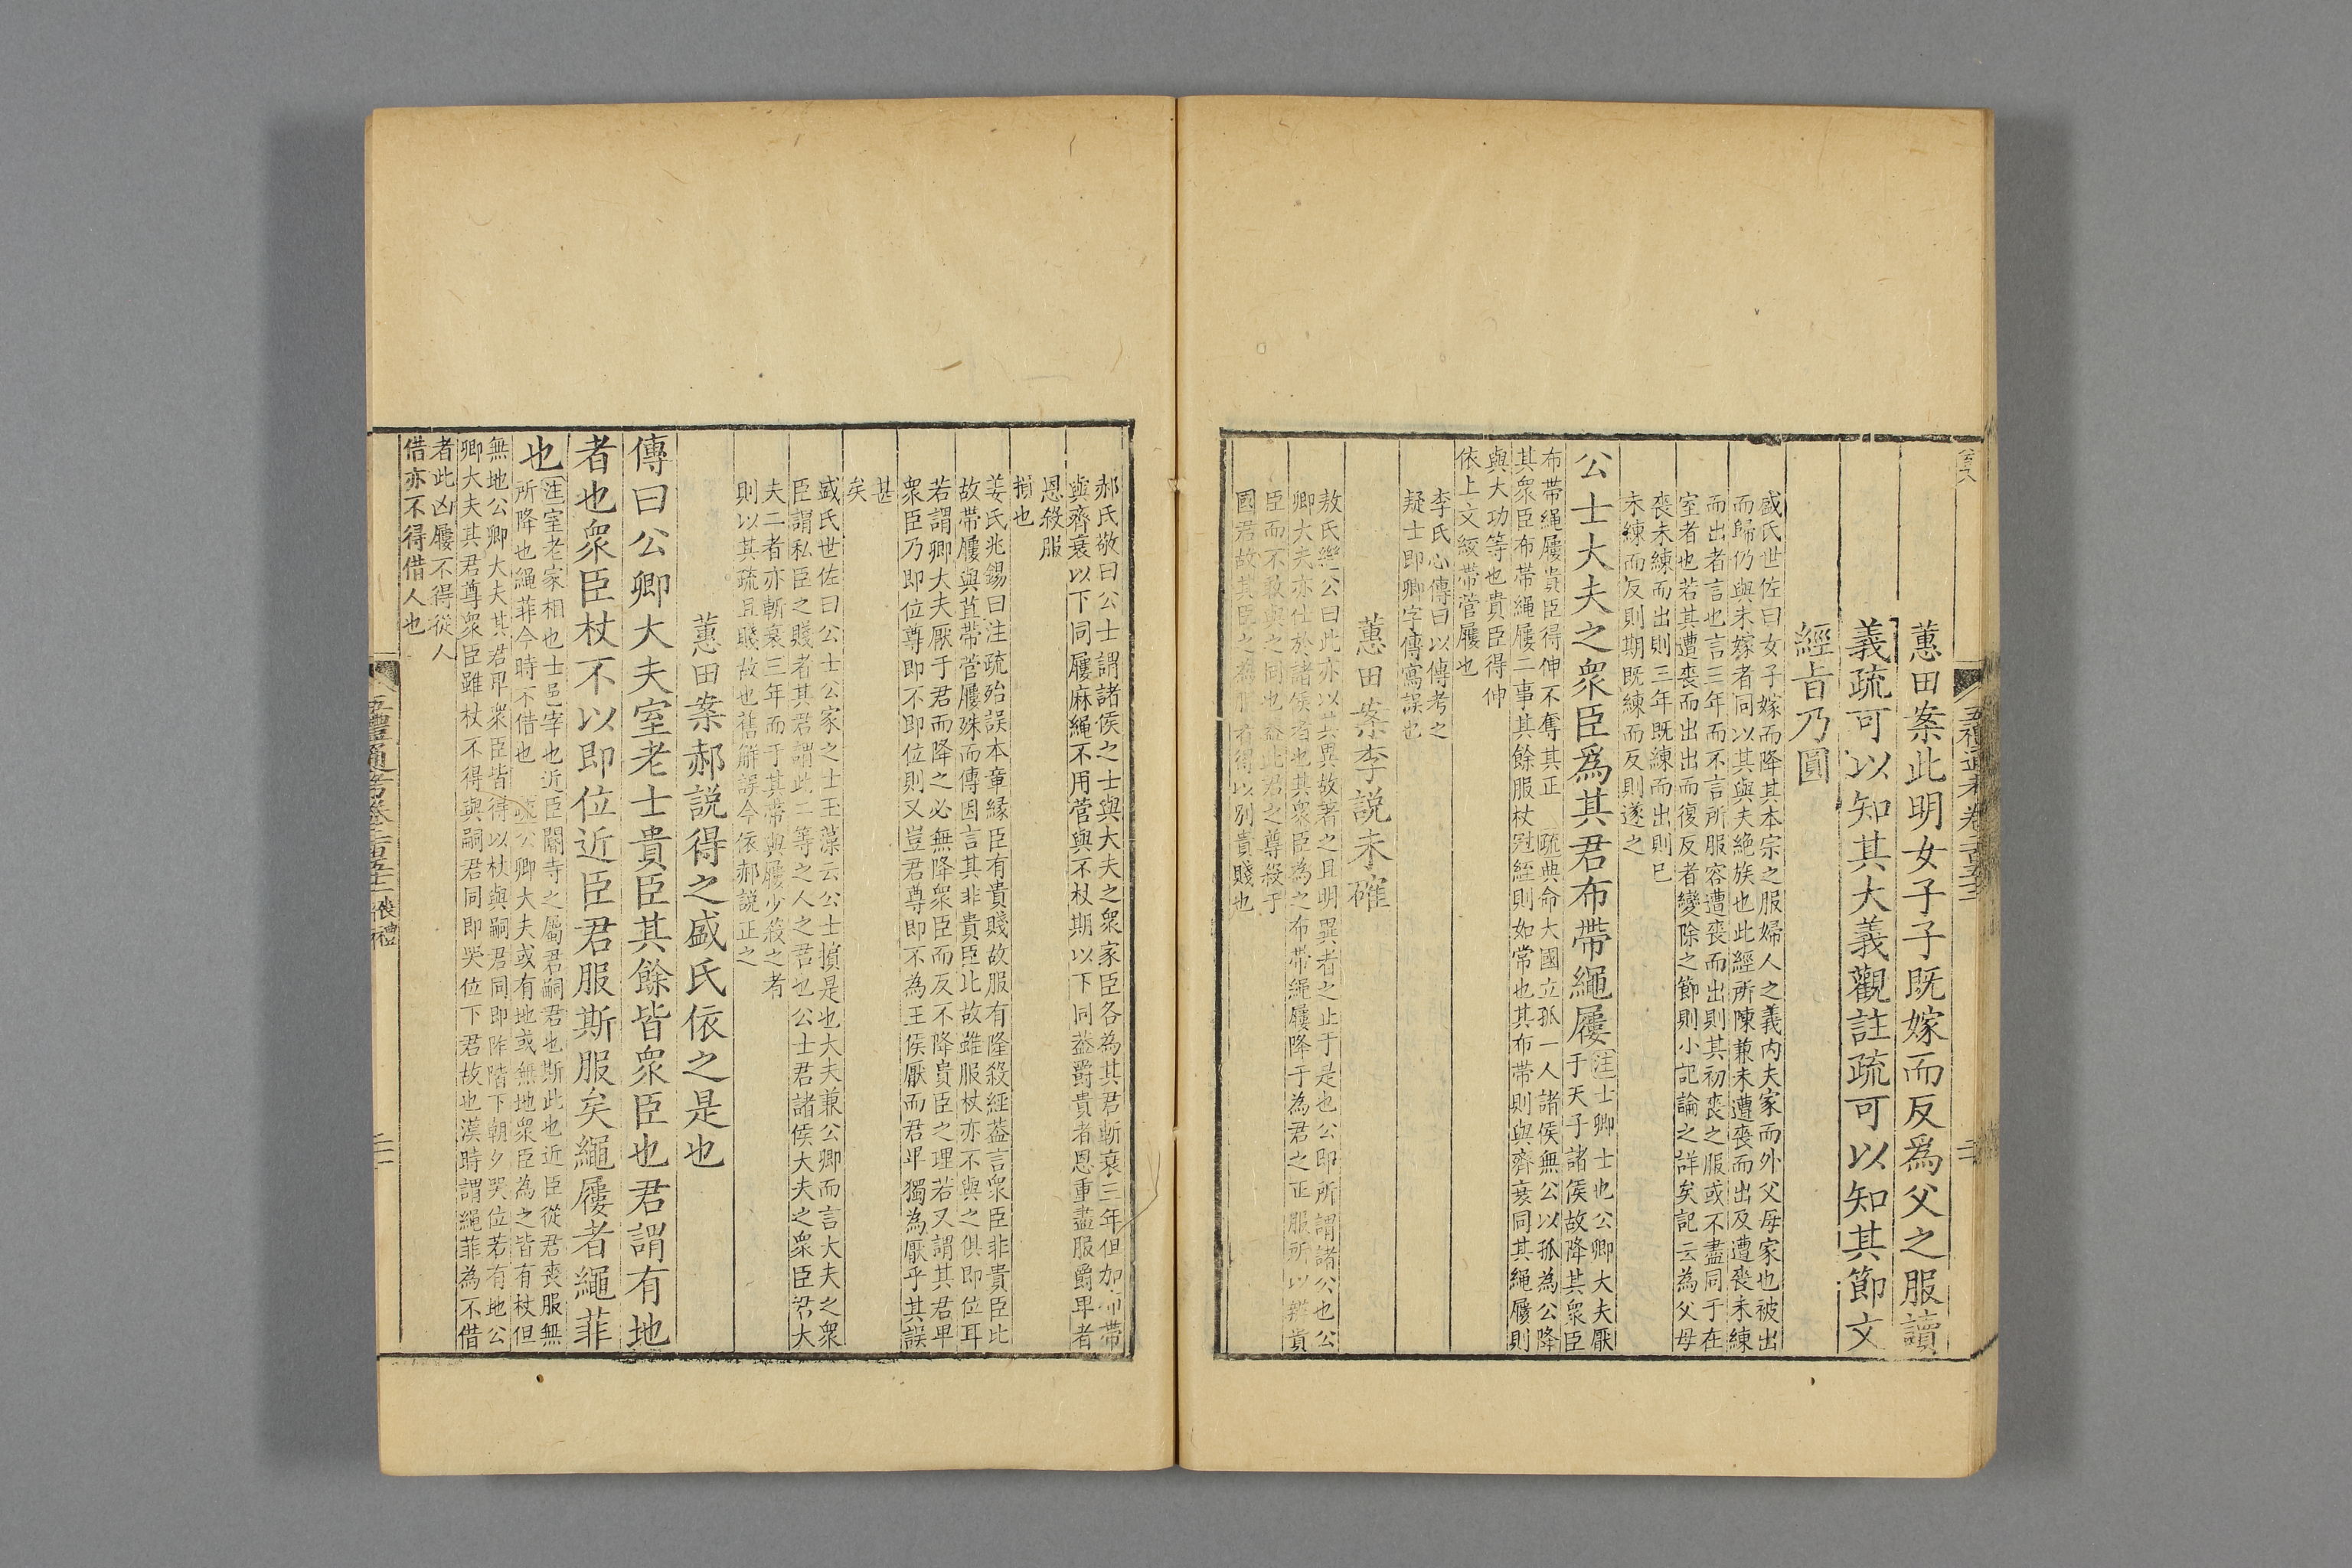 蕙田案此明女子子既嫁而反爲父之服讀
義疏可以知其大義觀註疏可以知其節文
經㫖乃圓
盛氏世佐曰女子嫁而降其本宗之服婦人之義内夫家而外父母家也被出
而歸仍與未嫁者同以其與夫絶族也此經所陳兼未遭喪而出及遭喪未練
而出者言也言三年而不言所服容遭喪而出則其初喪之服或不盡同于在
室者也若其遭喪而出出而復反者變除之節則小記論之詳矣記云為父母
喪未練而出則三年既練而出則已
未練而反則期既練而反則遂之
公士大夫之衆臣爲其君布帶繩屨
注士卿士也公卿大夫厭
于天子諸侯故降其衆臣
布帶繩屨貴臣得伸不奪其正 疏典命大國立孤一人諸侯無公以孤為公降
其衆臣布帶繩屨二事其餘服杖冠絰則如常也其布帶則與齊衰同其繩屨則
與大功等也貴臣得伸
依上文絞帶菅屨也
李氏心傳曰以傳考之
疑士即卿字傳寫誤也
蕙田案李説未確
敖氏繼公曰此亦以其異故著之且明異者之止于是也公即所謂諸公也公
卿大夫亦仕於諸侯者也其衆臣為之布帶繩屨降于為君之正服所以辨貴
臣而不敢與之同也蓋此君之尊殺于
國君故其臣之為服者得以别貴賤也
五禮通考卷二百五十二
郝氏敬曰公士謂諸侯之士與大夫之衆家臣各為其君斬衰三年但加布帶
與齊衰以下同屨麻繩不用菅與不杖期以下同葢爵貴者恩重盡服爵卑者
恩殺服
損也
姜氏兆錫曰注疏殆誤本章縁臣有貴賤故服有隆殺經葢言衆臣非貴臣比
故帶屨與苴帶菅屨殊而傳因言其非貴臣比故雖服杖亦不與之俱即位耳
若謂卿大夫厭于君而降之必無降衆臣而反不降貴臣之理若又謂其君卑
衆臣乃即位尊即不即位則又豈君尊即不為王侯厭而君卑獨為厭乎其誤
甚
矣
盛氏世佐曰公士公家之士玉藻云公士擯是也大夫兼公卿而言大夫之衆
臣謂私臣之賤者其君謂此二等之人之君也公士君諸侯大夫之衆臣君大
夫二者亦斬衰三年而于其帶與屨少殺之者
則以其疏且賤故也舊解誤今依郝説正之
蕙田案郝説得之盛氏依之是也
傳曰公卿大夫室老士貴臣其餘皆衆臣也君謂有地
者也衆臣杖不以即位近臣君服斯服矣繩屨者繩菲
也
注室老家相也士邑宰也近臣閽寺之屬君嗣君也斯此也近臣從君喪服無
所降也繩菲今時不借也 疏公卿大夫或有地或無地衆臣為之皆有杖但
無地公卿大夫其君卑衆臣皆得以杖與嗣君同即阼階下朝夕哭位若有地公
卿大夫其君尊衆臣雖杖不得與嗣君同即哭位下君故也漢時謂繩菲為不借
者此凶屨不得從人
借亦不得借人也
五禮通考卷二百五十二 喪禮